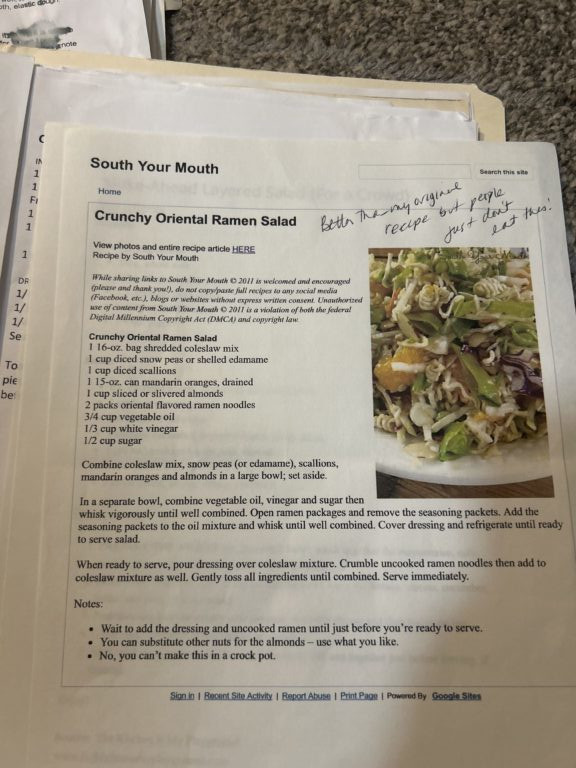 oth, elastic dough
note
South Your Mouth
Search this site
Home
Crunchy Oriental Ramen Salad
Better than my original
recipe but people
just don't
eat this!
View photos and entire recipe article HERE
Recipe by South Your Mouth
While sharing links to South Your Mouth © 2011 is welcomed and encouraged
(please and thank you!), do not copy/paste full recipes to any social media
(Facebook, etc.), blogs or websites without express written consent. Unauthorized
use of content from South Your Mouth © 2011 is a violation of both the federal
Digital Millennium Copyright Act (DMCA) and copyright law.
Crunchy Oriental Ramen Salad
1 16-oz. bag shredded coleslaw mix
1 cup diced snow peas or shelled edamame
1 cup diced scallions
1 15-oz. can mandarin oranges, drained
1 cup sliced or slivered almonds
2 packs oriental flavored ramen noodles
3/4 cup vegetable oil
1/3 cup white vinegar
1/2 cup sugar
Combine coleslaw mix, snow peas (or edamame), scallions,
mandarin oranges and almonds in a large bowl; set aside.
In a separate bowl, combine vegetable oil, vinegar and sugar then
whisk vigorously until well combined. Open ramen packages and remove the seasoning packets. Add the
seasoning packets to the oil mixture and whisk until well combined. Cover dressing and refrigerate until ready
to serve salad.
When ready to serve, pour dressing over coleslaw mixture. Crumble uncooked ramen noodles then add to
coleslaw mixture as well. Gently toss all ingredients until combined. Serve immediately.
Notes:
• Wait to add the dressing and uncooked ramen until just before you're ready to serve.
• You can substitute other nuts for the almonds – use what you like.
• No, you can't make this in a crock pot.
Sign in | Recent Site Activity | Report Abuse | Print Page | Powered By Google Sites